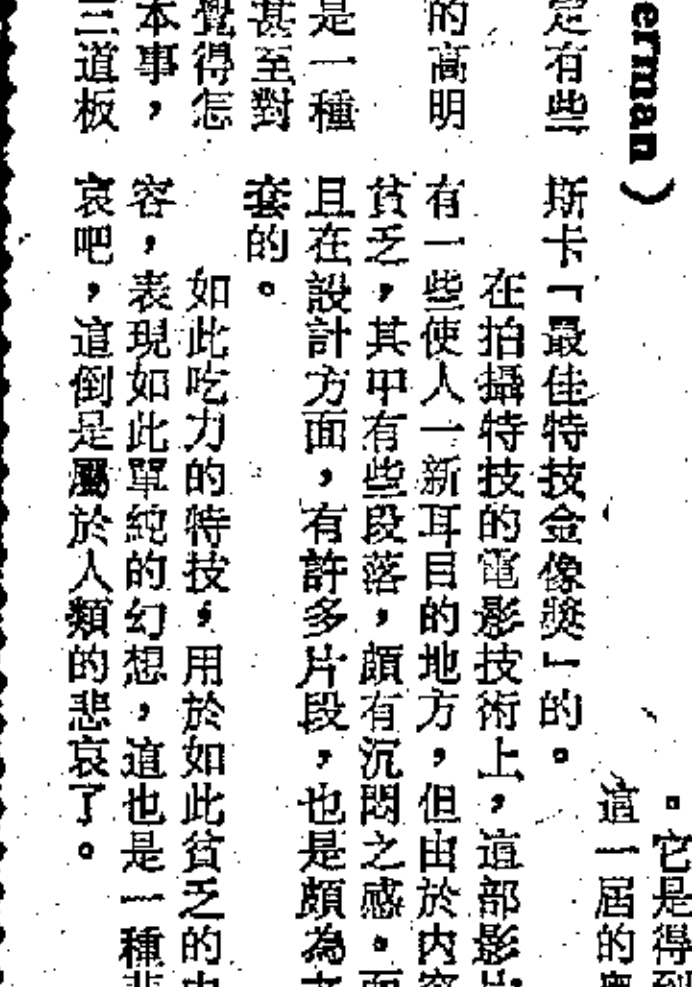 erman）
定有些
的高明
是一種
甚至對
覺得怎
本事，
三道板
。它是得到
這一屆的奧
斯卡「最佳特技金像獎」的。
在拍攝特技的電影技術上，這部影片
有一些使人一新耳目的地方，但由於内容
貧乏，其中有些段落，頗有沉悶之感。而
且在設計方面，有許多片段，也是頗為
套的。
如此吃力的特技，用於如此貧乏的内
容，表現如此單純的幻想，這也是一種悲
哀吧，這倒是屬於人類的悲哀了。